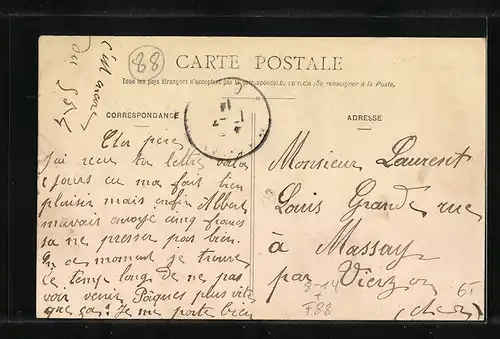 c'est
du 5514
88
CARTE POSTALE
Tous les pays étrangers n'acceptent pas la correspondance au recto (Se renseigner à la Poste,
CORRESPONDANCE
ADRESSE
Cher père
J'ai reçu ta lettre voila
2 jours ca ma fait bien
plaisir mais enfin Albert
mavait envoyé cinq francs
sa ne presser pas bien.
En ce moment je trouve
le temps long de ne pas
voir venir Pâques plus vite
que ça. Je me porte bien
Monsieur Laurent
Louis Grande rue
à Massay
par Vierzon
(Cher)
3-14
+
F88
65